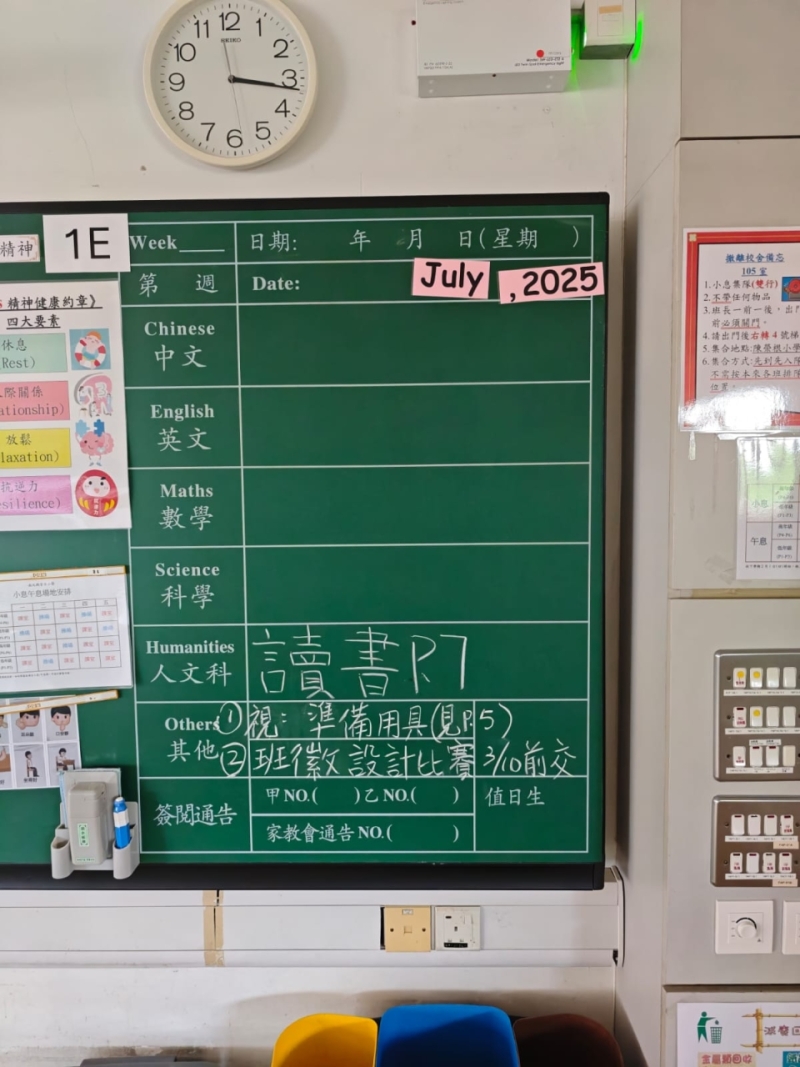 SEIKO
12
11
1
10
2
9
3
8
4
7
6
5
精神
1E
Week
日期: 年 月 日(星期 )
第 週
Date:
July , 2025
精神健康約章》
四大要素
休息
Rest)
人際關係
ationship)
放鬆
laxation)
抗逆力
esilience)
Chinese
中文
English
英文
Maths
數學
Science
科學
Humanities
人文科
讀書P.7
Others
其他
①視：準備用具(見P.5)
②班徽設計比賽 3/10前交
簽閱通告
甲NO.( )乙NO.( )
家教會通告NO.( )
值日生
小息午息場地安排
撤離校舍備忘
105 室
1. 小息集隊(雙行)
2. 不帶任何物品
3. 班長一前一後，出門
前必須關門。
4. 請出門後右轉4號梯
5. 集合地點:陳榮根小學
6. 集合方式:先到先入隊
不需按本來各班排隊
位置。
小息
午息